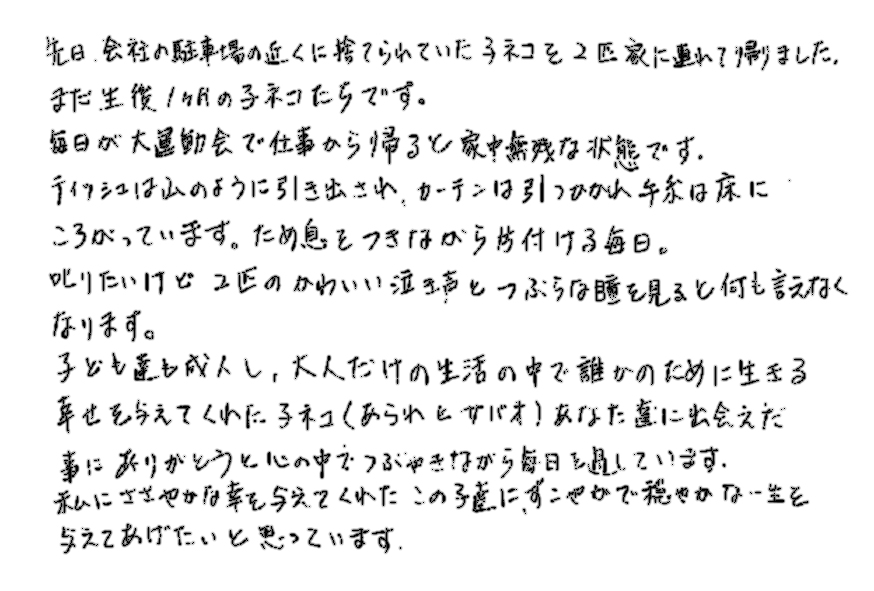 先日、会社の駐車場の近くに捨てられていた子ネコを2匹家に連れて帰りました。
まだ生後1ヶ月の子ネコたちです。
毎日が大運動会で仕事から帰ると家中無残な状態です。
ティッシュは山のように引き出され、カーテンは引っかかれ毛糸は床に
ころがっています。ため息をつきながら片付ける毎日。
叱りたいけど2匹のかわいい泣き声とつぶらな瞳を見ると何も言えなく
なります。
子ども達も成人し、大人だけの生活の中で誰かのために生きる
幸せを与えてくれた子ネコ(あられとサバオ)あなた達に出会えた
事にありがとうと心の中でつぶやきながら毎日を過しています。
私にささやかな幸を与えてくれたこの子達にすこやかで穏やかな一生を
与えてあげたいと思っています.